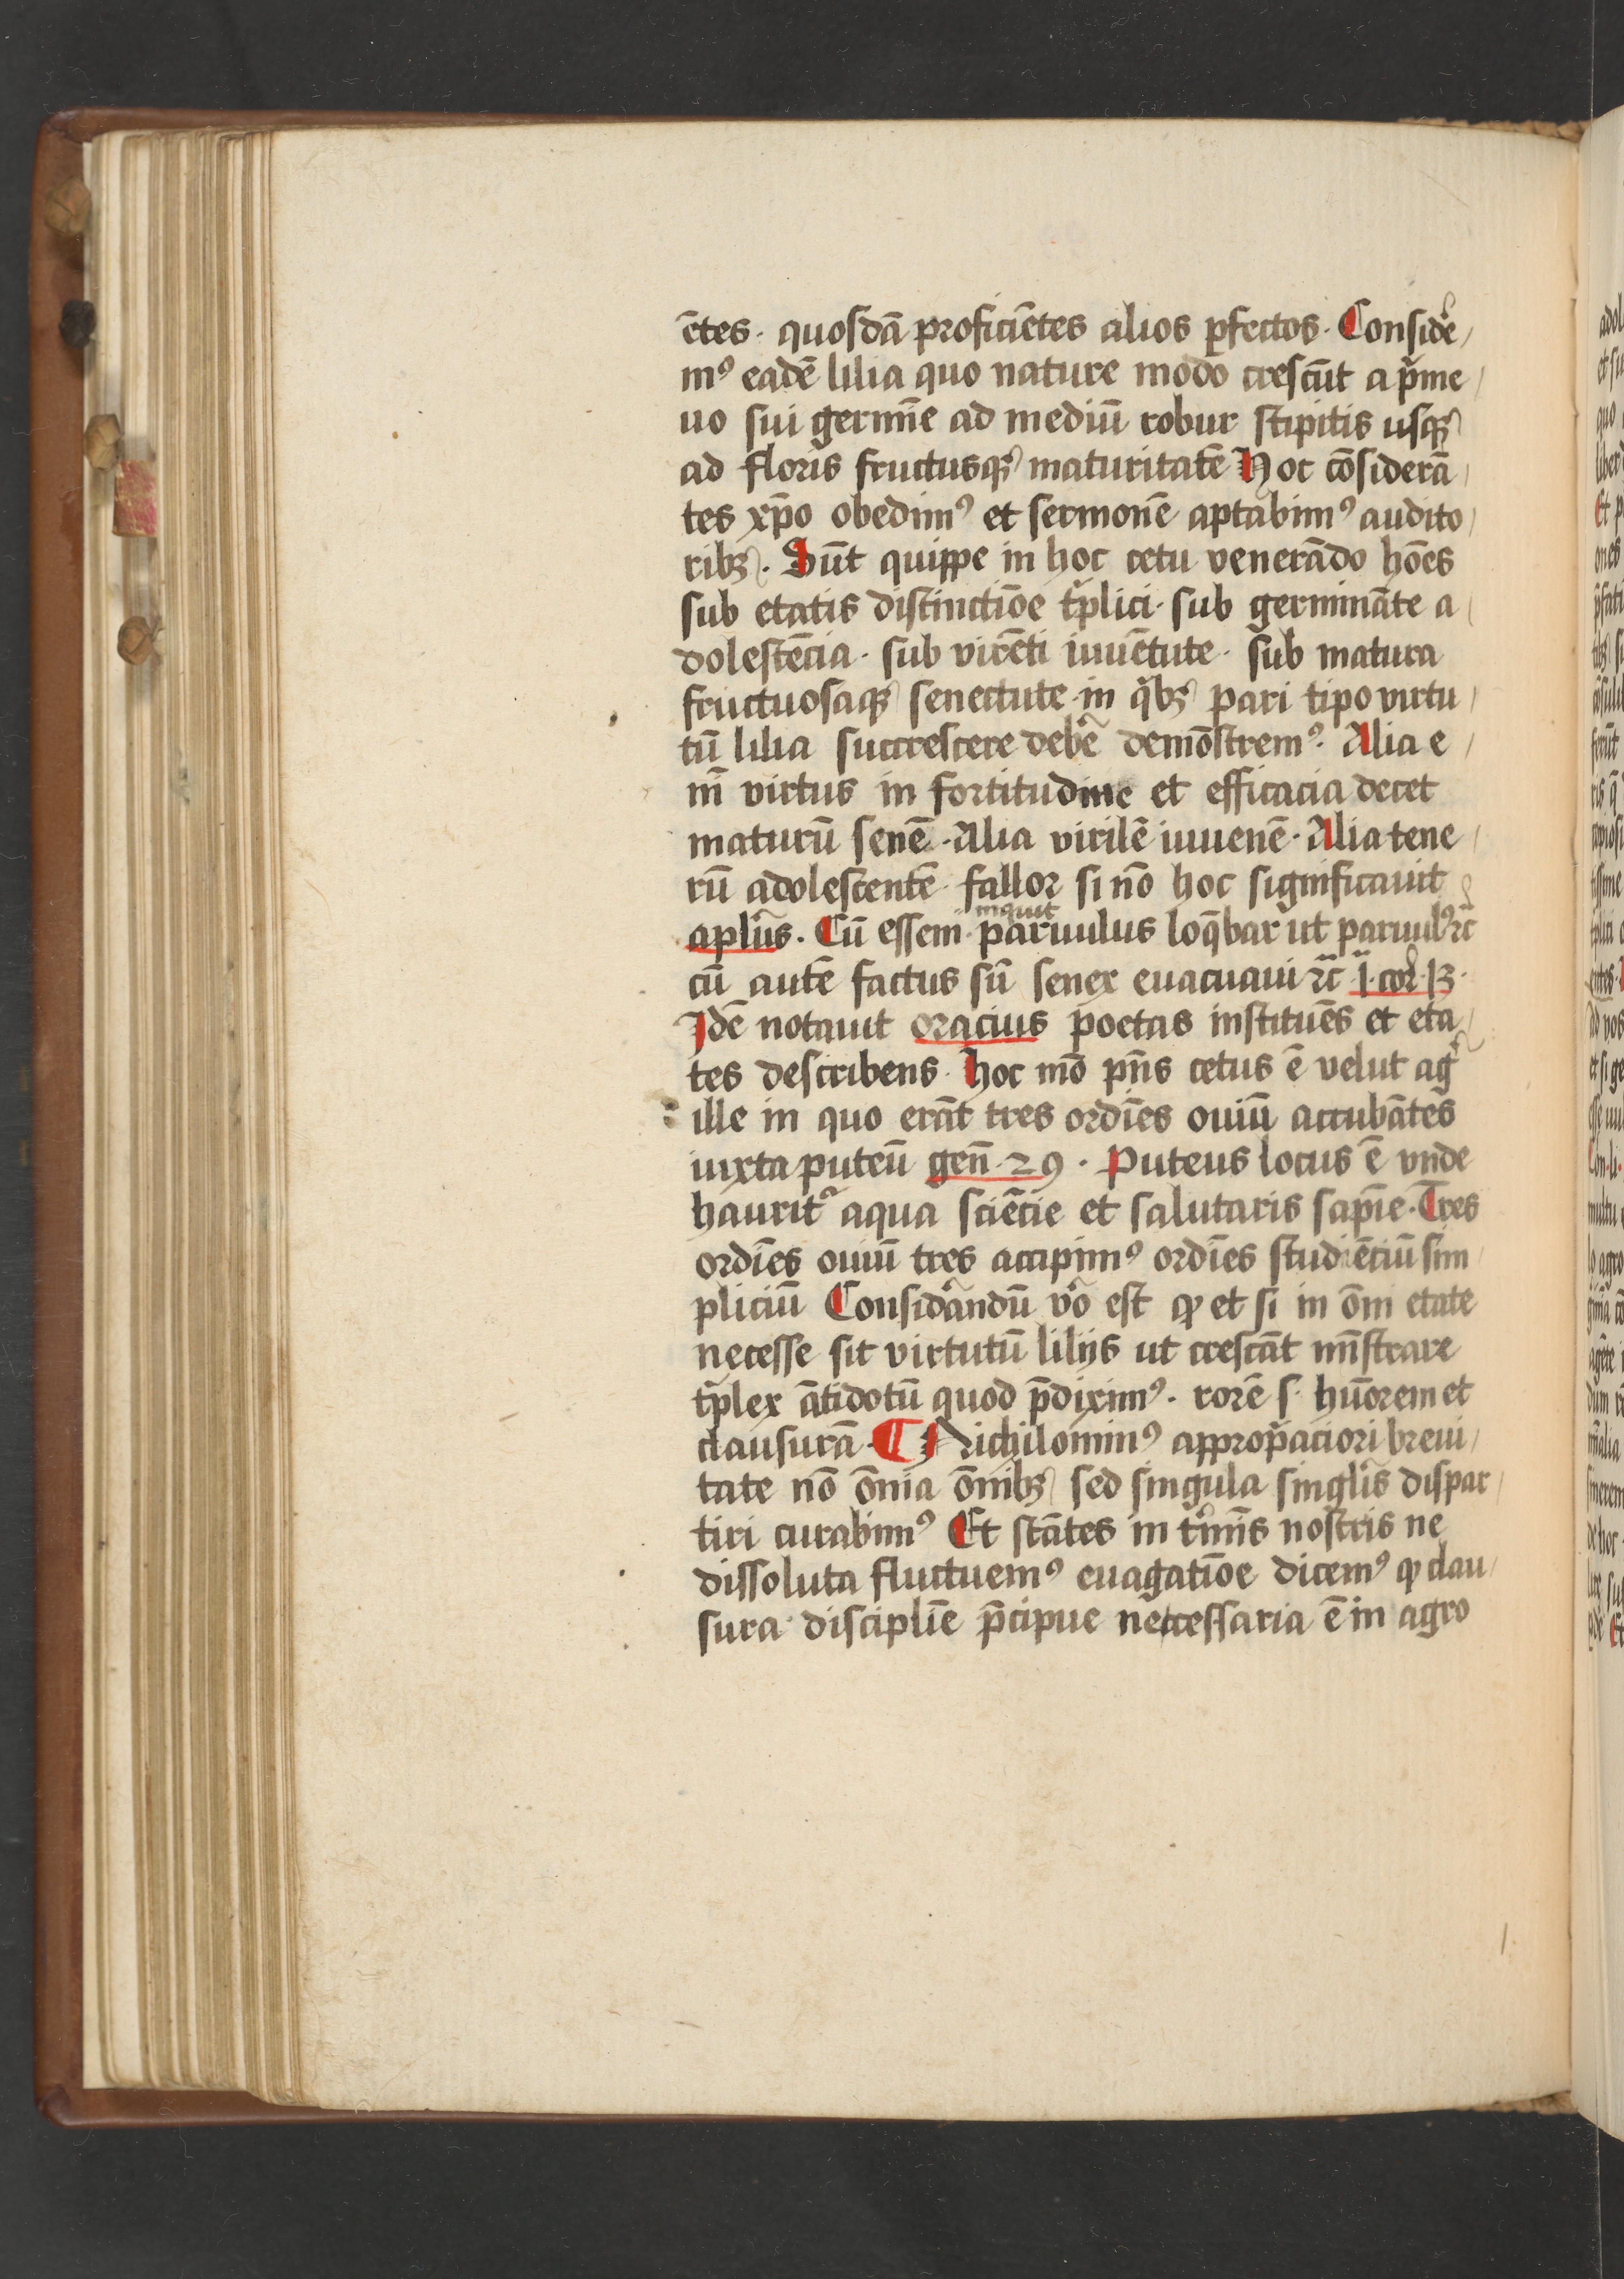 ētes · quosdā proficiētes alios ꝑfectos · Consideᷣ/
mꝰ eadē lilia quo nature modo crescūt a pͥme/
uo sui germīe ad mediū robur stipitis usqꝫ
ad floris fructusqꝫ maturitatē Hoc cōsiderā/
tes xp̄o obedimꝰ et sermonē aptabimꝰ audito/
ribꝫ · Sūt quippe in hoc cetu venerādo hōes
sub etatis distinctiōe tͥplici · sub germināte a/
dolescēcia · sub virēti iuuētute · sub matura
fructuosaqꝫ senectute · in qͥbꝫ pari tipo virtu/
tū lilia succrescere debē demōstremꝰ · Alia e/
m̄ virtus in fortitudine et efficacia decet
maturū senē · Alia virilē iuuenē · Alia tene/
rū adolescentē · fallor si nō hoc significauit
apl̄us · Cū essem inquit paruulus loq̄bar ut paruulꝰ ⁊c̄
cū autē factus sū senex euacuaui ⁊c̄ j · cor · 13 ·
Idē notauit oracius poetas instituēs et eta/
tes describens · Hoc mō pn̄s cetus ē velut agᷣ
ille in quo erāt tres ordīes ouiū accubātes
iuxta puteū gen̄ · 29 · Puteus locus ē vnde
hauritᷣ aqua sciēcie et salutaris sapīe · Tres
ordīes ouiū tres accipimꝰ ordīes studiēciū sim/
pliciū Consideᷓndū v̄o est ꝙ et si in ōni etate
necesse sit virtutū liliis ut crescāt mīstrare
tͥplex ātidotū quod p̄diximꝰ · rorē s · hūorem et
clausurā · ¶ Nichilominꝰ appropͥaciori breui/
tate nō ōnia ōnibꝫ sed singula singl̄is dispar/
tiri curabimꝰ Et stātes in tᷣmīs nostris ne
dissoluta fluctuemꝰ euagatiōe dicemꝰ ꝙ clau/
sura disciplīe p̄cipue neccessaria ē in agro